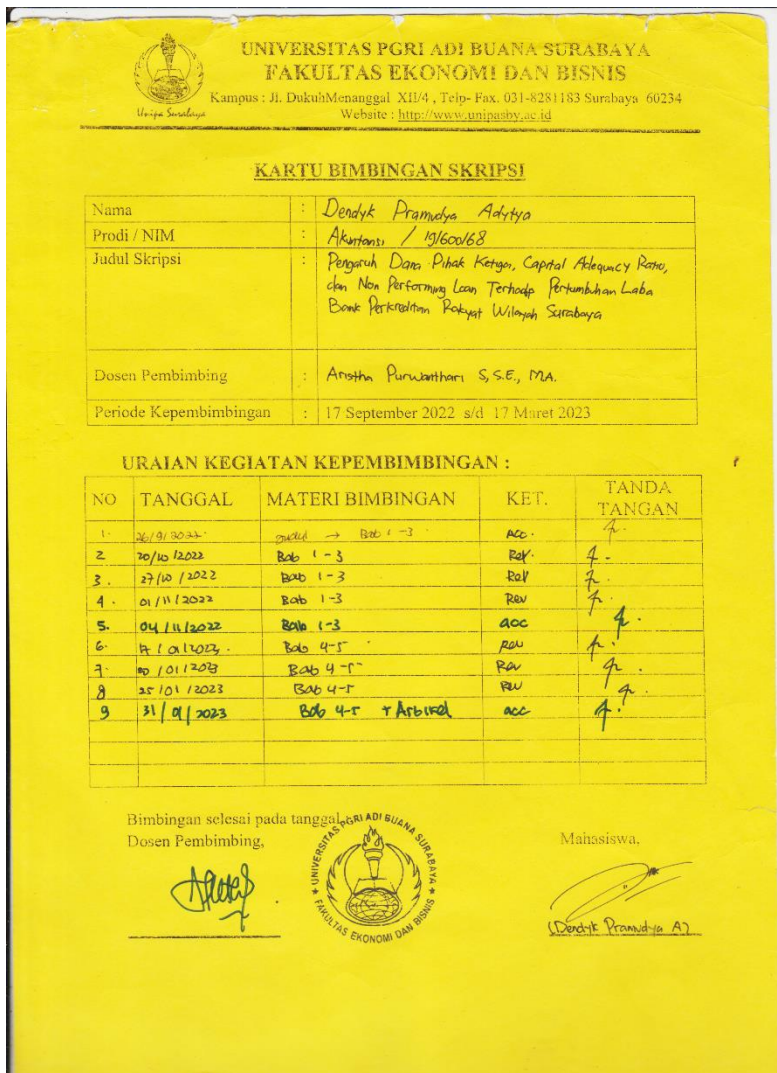 UNIVERSITAS PGRI ADI BUANA SURABAYA
FAKULTAS EKONOMI DAN BISNIS
Kampus : Jl. DukuhMenanggal XII/4 , Telp- Fax. 031-8281183 Surabaya 60234
Website : http://www.unipasby.ac.id
Unipa Surabaya
KARTU BIMBINGAN SKRIPSI
Nama : Dendyk Pramudya Adytya
Prodi / NIM : Akuntansi / 191600168
Judul Skripsi : Pengaruh Dana Pihak Ketiga, Capital Adequacy Ratio,
dan Non Performing Loan Terhadap Pertumbuhan Laba
Bank Perkreditan Rakyat Wilayah Surabaya
Dosen Pembimbing : Aristha Purwanthari S, S.E., MA.
Periode Kepembimbingan : 17 September 2022 s/d 17 Maret 2023
URAIAN KEGIATAN KEPEMBIMBINGAN :
NO TANGGAL MATERI BIMBINGAN KET. TANDA TANGAN
1. 26/9/2022 → Bab 1-3 Acc.
2 20/10/2022 Bab 1-3 Rev.
3. 27/10/2022 Bab 1-3 Rev
4. 01/11/2022 Bab 1-3 Rev
5. 04/11/2022 Bab 1-3 acc
6. 17/01/2023. Bab 4-5 Rev
7. /01/2023 Bab 4-5 Rev
8 25/01/2023 Bab 4-5 Rev
9 31/01/2023 Bab 4-5 + Artikel acc
Bimbingan selesai pada tanggal
Dosen Pembimbing, Mahasiswa,
UNIVERSITAS PGRI ADI BUANA SURABAYA
FAKULTAS EKONOMI DAN BISNIS
(Dendyk Pramudya A)